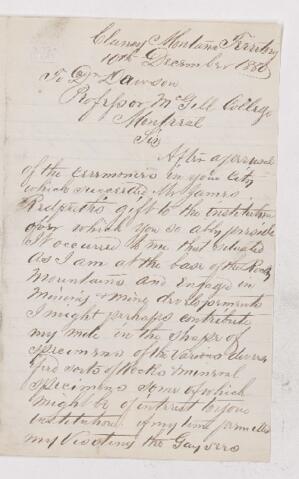 Clancy Montana Territory
10th December 1880
To Dr Dawson
Professor McGill College
Montreal
Sir
After a perusal
of the ceremonies in your City
which succeeded Mr James
Redpath's gift to the institution
over which you so ably preside
It occurred to me that situated
As I am at the base of the Rocky
Mountains and Engage in
Mining & mine developments
I might perhaps contribute
my mite in the shape of
specimens of the Various divers
ified sorts of Rocks & mineral
specimens some of which
might be of interest to your
institution if my time permitted
my Visiting the Gaysers